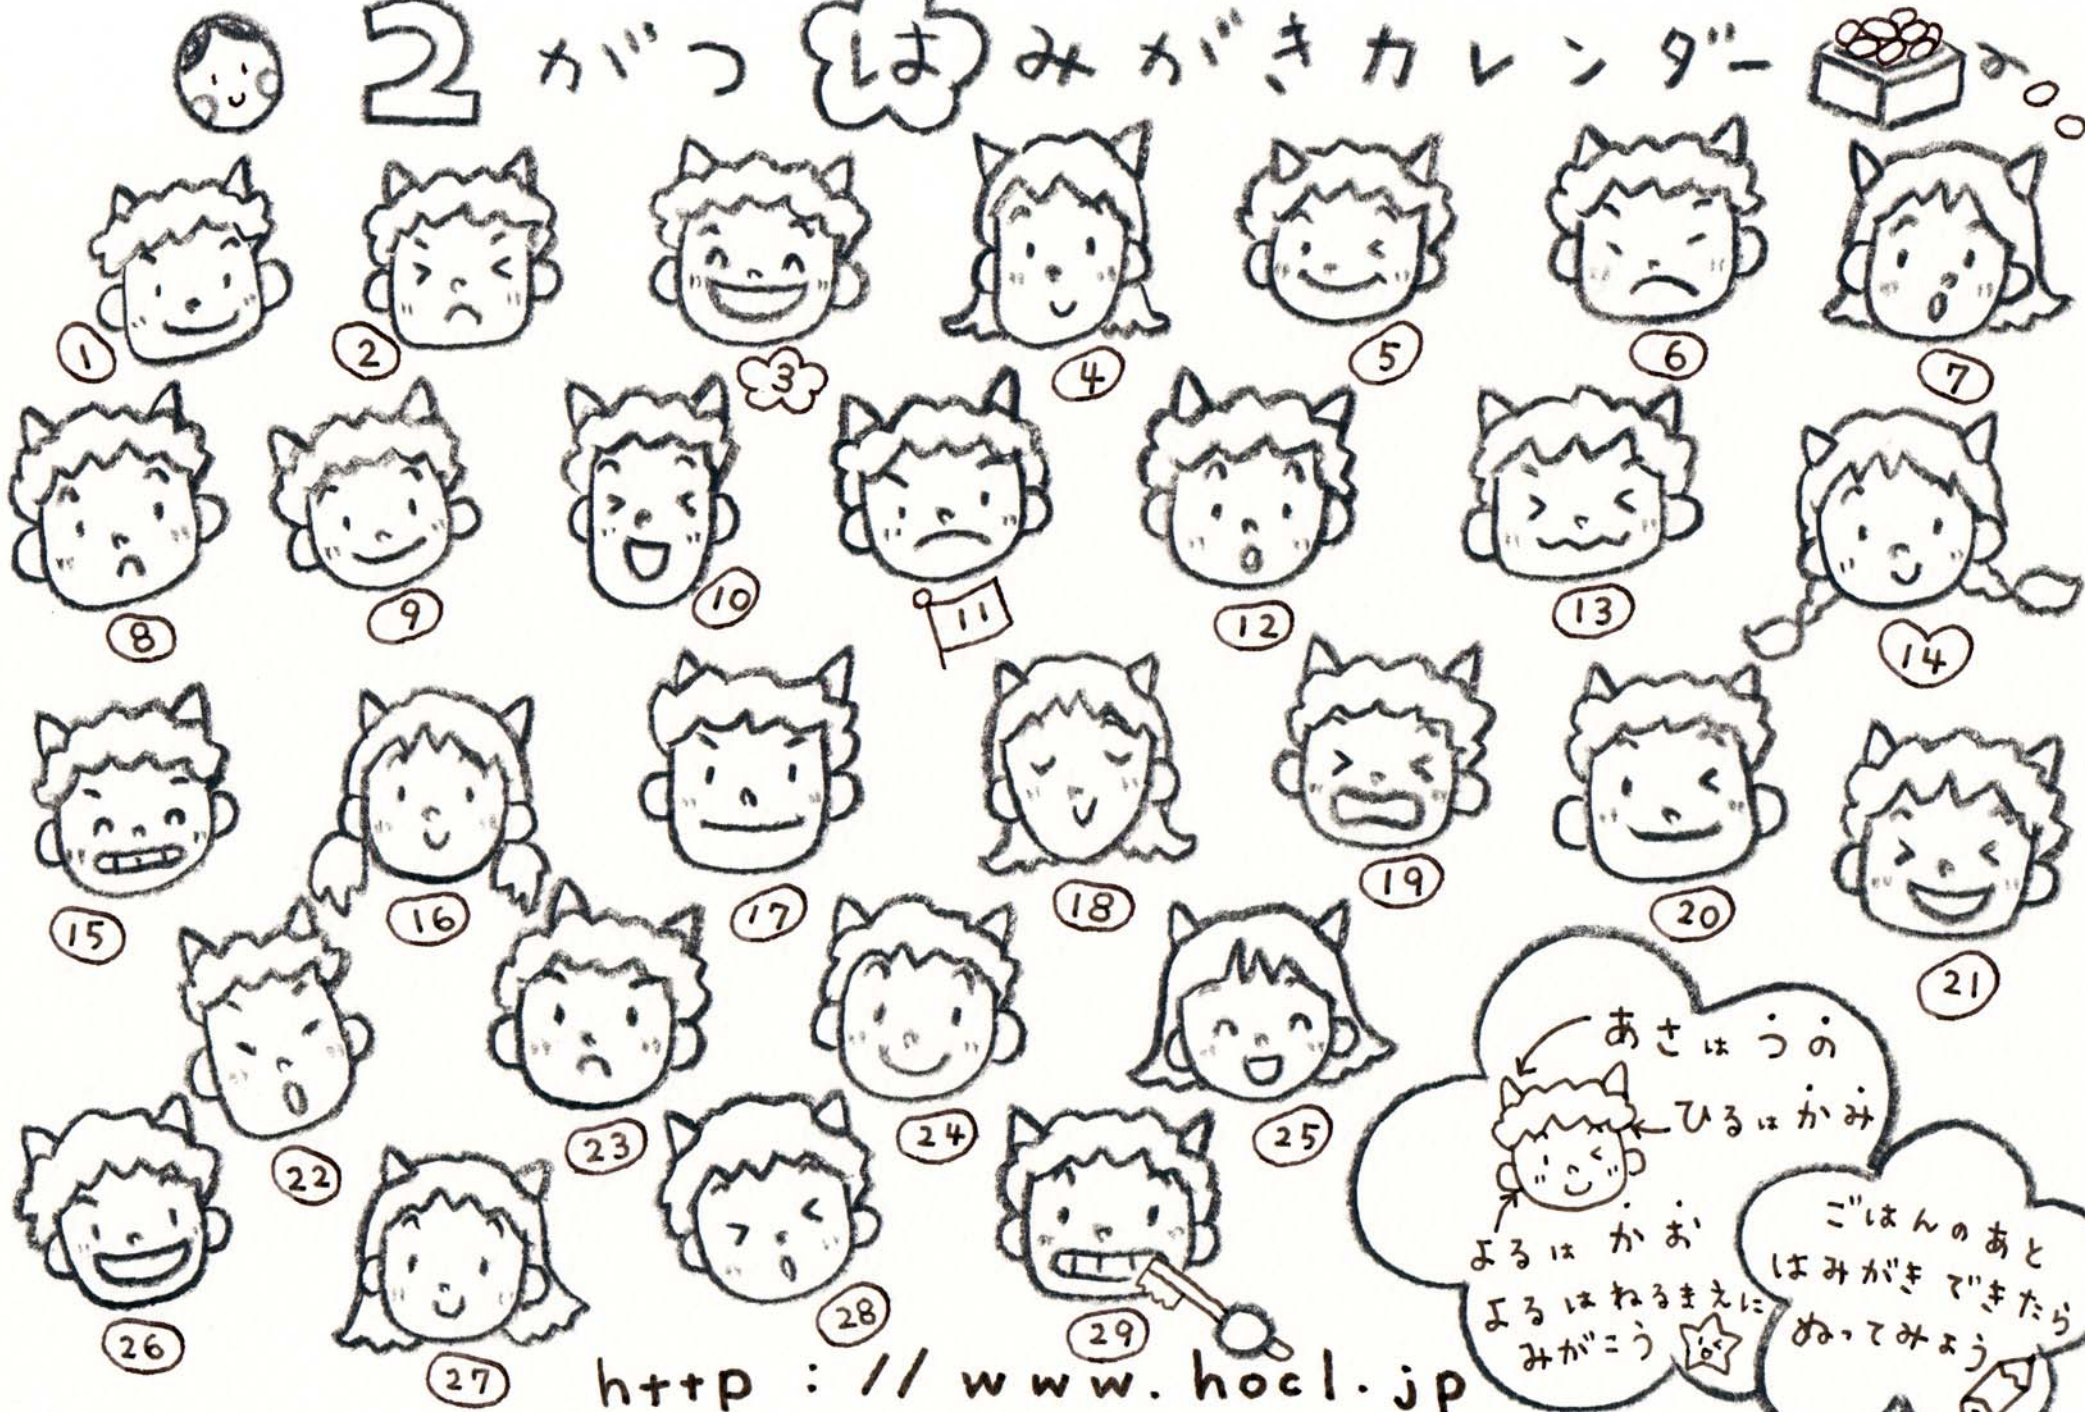 2がつはみがきカレンダー
1 2 3 4 5 6 7
8 9 10 11 12 13 14
15 16 17 18 19 20 21
22 23 24 25
26 27 28 29
あさはうの
ひるはかみ
よるはかお
よるはねるまえに
みがこう
ごはんのあと
はみがきできたら
ぬってみよう
http://www.hocl.jp